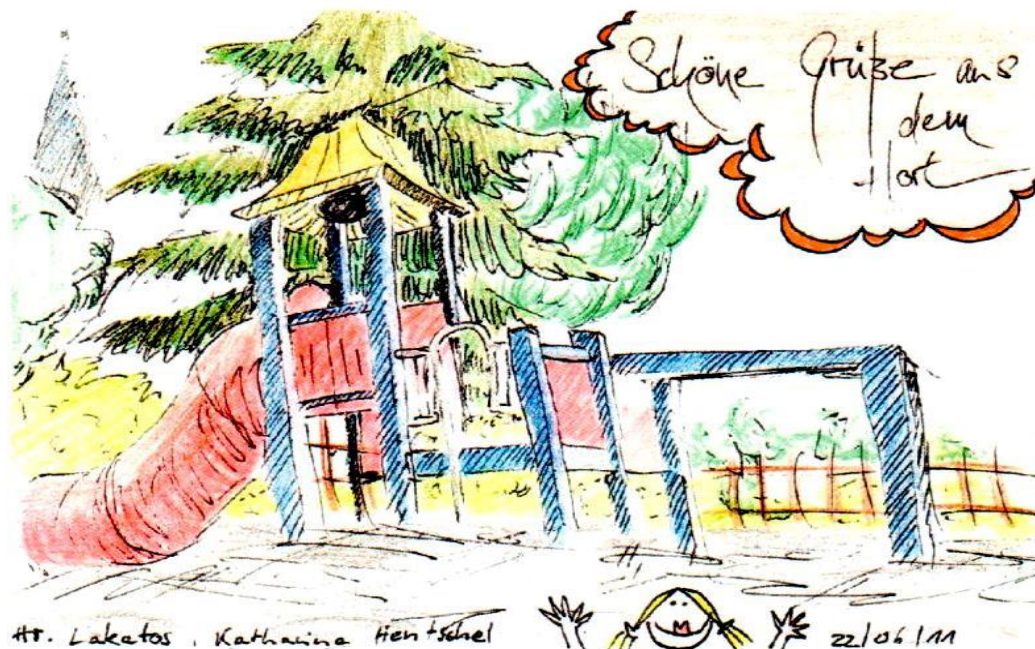 Schöne Grüße aus
dem
Hort
Hr. Lakatos, Katharina Hentschel
22/06/11